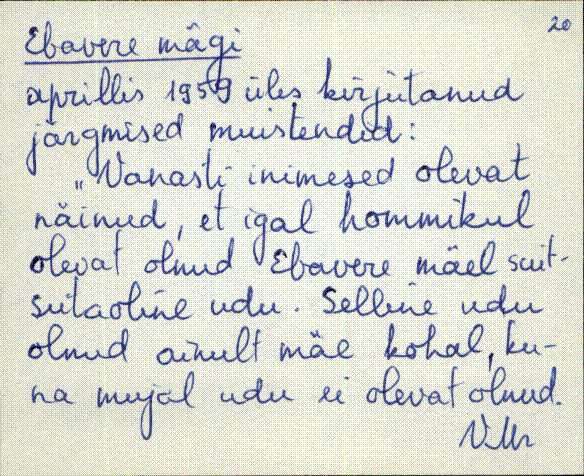 20
Ebavere mägi
aprillis 1959 üles kirjutanud
järgmised muistendid:
„Vanasti inimesed olevat
näinud, et igal hommikul
olevat olnud Ebavere mäel suit-
suitaoline udu. Selline udu
olnud ainult mäe kohal, ku-
na mujal udu ei olevat olnud.